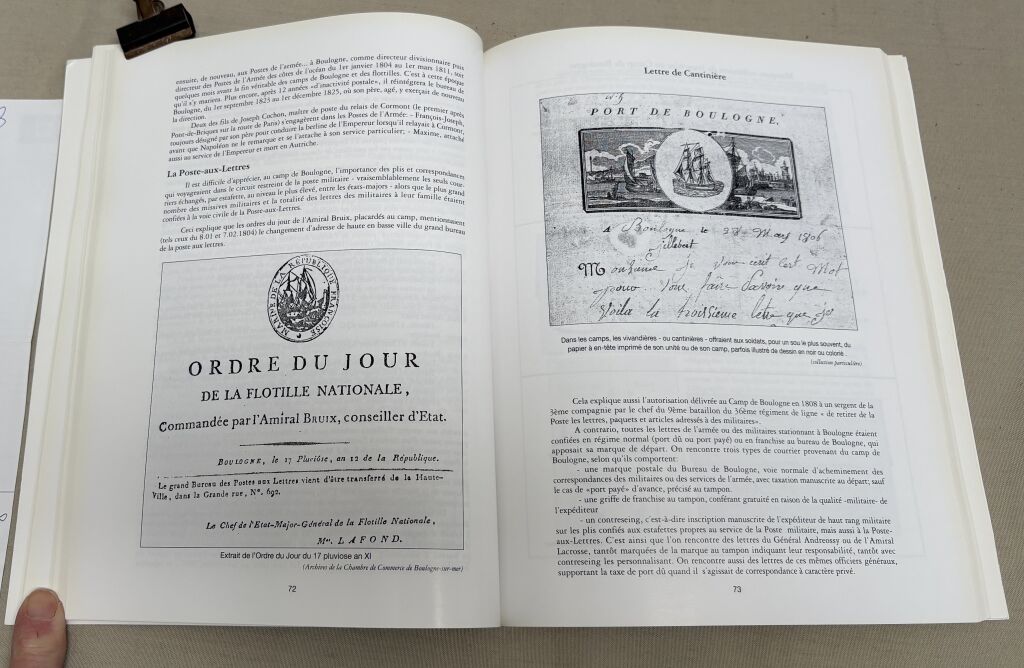 ensuite, de nouveau, aux Postes de l'armée... à Boulogne, comme directeur divisionnaire puis
directeur des Postes de l'Armée des côtes de l'océan du 1er janvier 1804 au 1er mars 1811, soit
quelques mois avant la fin véritable des camps de Boulogne et des flottilles. C'est à cette époque
qu'il s'y mariera. Plus encore, après 12 années «d'inactivité postale», il réintégrera le bureau de
Boulogne, du 1er septembre 1823 au 1er décembre 1825, où son père, agé, y exerçait de nouveau
la direction.
Deux des fils de Joseph Cochon, maître de poste du relais de Cormont (le premier après
Pont-de-Briques sur la route de Paris) s'engagèrent dans les Postes de l'Armée: - François-Joseph,
toujours désigné par son père pour conduire la berline de l'Empereur lorsqu'il relayait à Cormont,
avant que Napoléon ne le remarque et se l'attache à son service particulier; - Maxime, attaché
aussi au service de l'Empereur et mort en Autriche.
La Poste-aux-Lettres
Il est difficile d'apprécier, au camp de Boulogne, l'importance des plis et correspondances
qui voyageaient dans le circuit restreint de la poste militaire - vraisemblablement les seuls cour-
riers échangés, par estafette, au niveau le plus élevé, entre les états-majors - alors que le plus grand
nombre des missives militaires et la totalité des lettres des militaires à leur famille étaient
confiées à la voie civile de la Poste-aux-Lettres.
Ceci explique que les ordres du jour de l'Amiral Bruix, placardés au camp, mentionnaient
(tels ceux du 8.01 et 7.02.1804) le changement d'adresse de haute en basse ville du grand bureau
de la poste aux lettres.
MARINE DE LA RÉPUBLIQUE FRANÇOISE
ORDRE DU JOUR
DE LA FLOTILLE NATIONALE,
Commandée par l'Amiral BRUIX, conseiller d'Etat.
BOULOGNE, le 17 Pluviôse, an 12 de la République.
Le grand Bureau des Postes aux Lettres vient d'être transféré de la Haute-
Ville, dans la Grande rue, N°. 692.
Le Chef de l'Etat-Major-Général de la Flotille Nationale,
LAFOND.
Extrait de l'Ordre du Jour du 17 pluviose an XI
(Archives de la Chambre de Commerce de Boulogne-sur-mer)
72
Lettre de Cantinière
PORT DE BOULOGNE.
A Boulogne le 23 Mars 1806
Monsieur je vous ecrit cest Mot
pour vous faire Savoire que
Voila la troissieme letre que je
Dans les camps, les vivandières - ou cantinières - offraient aux soldats, pour un sou le plus souvent, du
papier à en-tête imprimé de son unité ou de son camp, parfois illustré de dessin en noir ou colorié.
(collection particulière)
Cela explique aussi l'autorisation délivrée au Camp de Boulogne en 1808 à un sergent de la
3ème compagnie par le chef du 9ème bataillon du 36ème régiment de ligne « de retirer de la
Poste les lettres, paquets et articles adressés à des militaires».
A contrario, toutes les lettres de l'armée ou des militaires stationnant à Boulogne étaient
confiées en régime normal (port dû ou port payé) ou en franchise au bureau de Boulogne, qui
apposait sa marque de départ. On rencontre trois types de courrier provenant du camp de
Boulogne, selon qu'ils comportent:
- une marque postale du Bureau de Boulogne, voie normale d'acheminement des
correspondances des militaires ou des services de l'armée, avec taxation manuscrite au départ, sauf
le cas de «port payé» d'avance, précisé au tampon.
- une griffe de franchise au tampon, conférant gratuité en raison de la qualité -militaire- de
l'expéditeur
- un contreseing, c'est-à-dire inscription manuscrite de l'expéditeur de haut rang militaire
sur les plis confiés aux estafettes propres au service de la Poste militaire, mais aussi à la Poste-
aux-Lettres. C'est ainsi que l'on rencontre des lettres du Général Andreossy ou de l'Amiral
Lacrosse, tantôt marquées de la marque au tampon indiquant leur responsabilité, tantôt avec
contreseing les personnalisant. On rencontre aussi des lettres de ces mêmes officiers généraux,
supportant la taxe de port dû quand il s'agissait de correspondance à caractère privé.
73